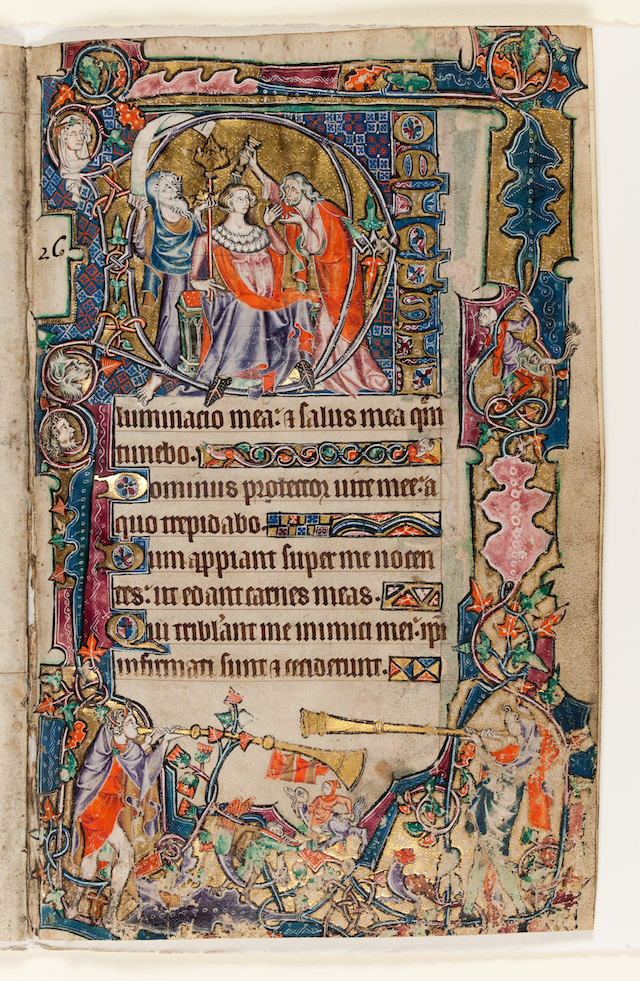 26
DOMIN
luminacio mea: ⁊ salus mea qm̄
timebo.
Dominus protector uite mee: a
quo trepidabo.
Dum appiant super me nocen
tes: ut edant carnes meas.
Qui tribl'ant me inimici mei: ipi
infirmati sunt ⁊ ceciderunt.